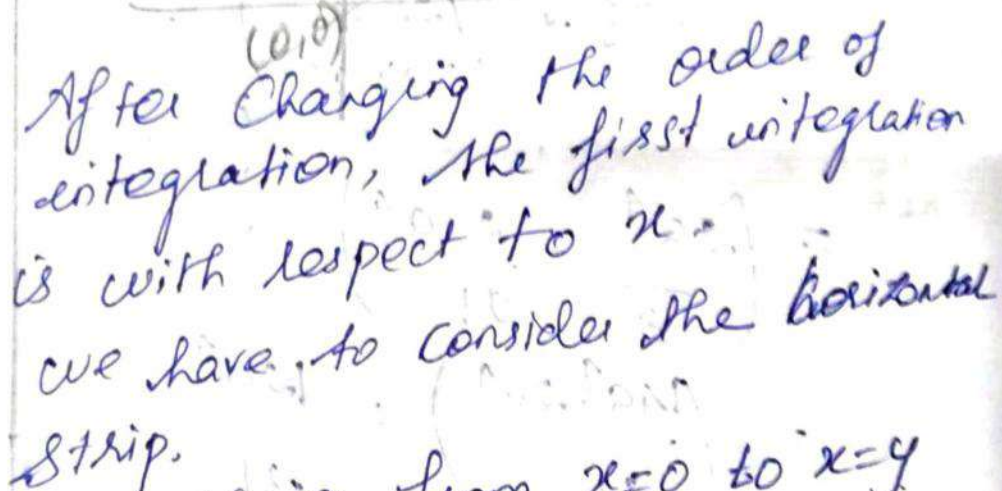 (0,0)
After Changing the order of
integration, the first integration
is with respect to x.
we have to consider the horizontal
strip.
from x=0 to x=y